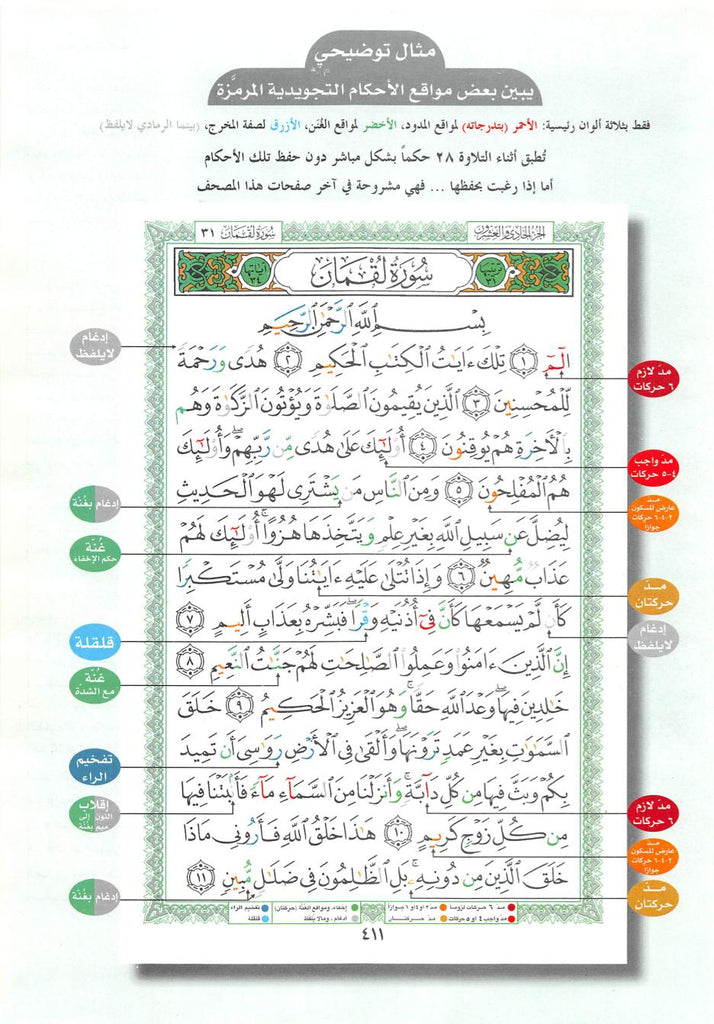 مثال توضيحي
يبين بعض مواقع الأحكام التجويدية المرمَّزة
فقط بثلاثة ألوان رئيسية: الأحمر (بتدرجاته) لمواقع المدود، الأخضر لمواقع الغُنَن، الأزرق لصفة المخرج، (بينما الرمادي لايلفظ)
تُطبق أثناء التلاوة ٢٨ حكماً بشكل مباشر دون حفظ تلك الأحكام
أما إذا رغبت بحفظها ... فهي مشروحة في آخر صفحات هذا المصحف
الجزء الحادي والعشرون
سُورَة لُقمَان ٣١
ترتيبها ٣١
سُورَةُ لُقْمَانَ
آياتها ٣٤
بِسْمِ ٱللَّهِ ٱلرَّحْمَٰنِ ٱلرَّحِيمِ
الٓمٓ ١ تِلْكَ ءَايَٰتُ ٱلْكِتَٰبِ ٱلْحَكِيمِ ٢ هُدًى وَرَحْمَةً
لِّلْمُحْسِنِينَ ٣ ٱلَّذِينَ يُقِيمُونَ ٱلصَّلَوٰةَ وَيُؤْتُونَ ٱلزَّكَوٰةَ وَهُم
بِٱلْءَاخِرَةِ هُمْ يُوقِنُونَ ٤ أُو۟لَٰٓئِكَ عَلَىٰ هُدًى مِّن رَّبِّهِمْ ۖ وَأُو۟لَٰٓئِكَ
هُمُ ٱلْمُفْلِحُونَ ٥ وَمِنَ ٱلنَّاسِ مَن يَشْتَرِى لَهْوَ ٱلْحَدِيثِ
لِيُضِلَّ عَن سَبِيلِ ٱللَّهِ بِغَيْرِ عِلْمٍ وَيَتَّخِذَهَا هُزُوًا ۚ أُو۟لَٰٓئِكَ لَهُمْ
عَذَابٌ مُّهِينٌ ٦ وَإِذَا تُتْلَىٰ عَلَيْهِ ءَايَٰتُنَا وَلَّىٰ مُسْتَكْبِرًا
كَأَن لَّمْ يَسْمَعْهَا كَأَنَّ فِىٓ أُذُنَيْهِ وَقْرًا ۖ فَبَشِّرْهُ بِعَذَابٍ أَلِيمٍ ٧
إِنَّ ٱلَّذِينَ ءَامَنُوا۟ وَعَمِلُوا۟ ٱلصَّٰلِحَٰتِ لَهُمْ جَنَّٰتُ ٱلنَّعِيمِ ٨
خَٰلِدِينَ فِيهَا ۖ وَعْدَ ٱللَّهِ حَقًّا ۚ وَهُوَ ٱلْعَزِيزُ ٱلْحَكِيمُ ٩ خَلَقَ
ٱلسَّمَٰوَٰتِ بِغَيْرِ عَمَدٍ تَرَوْنَهَا ۖ وَأَلْقَىٰ فِى ٱلْأَرْضِ رَوَٰسِىَ أَن تَمِيدَ
بِكُمْ وَبَثَّ فِيهَا مِن كُلِّ دَآبَّةٍ ۚ وَأَنزَلْنَا مِنَ ٱلسَّمَآءِ مَآءً فَأَنۢبَتْنَا فِيهَا
مِن كُلِّ زَوْجٍ كَرِيمٍ ١٠ هَٰذَا خَلْقُ ٱللَّهِ فَأَرُونِى مَاذَا
خَلَقَ ٱلَّذِينَ مِن دُونِهِۦ ۚ بَلِ ٱلظَّٰلِمُونَ فِى ضَلَٰلٍ مُّبِينٍ ١١
مد ٦ حركات لزوماً
مد ٢ او ٤ او ٦ جوازاً
إخفاء، ومواقع الغُنَّة (حركتان)
تفخيم الراء
مدّ واجب ٤ او ٥ حركات
مد حركتان
إدغام، ومالا يُلفَظ
قلقلة
٤١١
مدّ لازم
٦ حركات
مدّ واجب
٤-٥ حركات
مد
عارض للسكون
٢-٤-٦ حركات
جوازاً
مدّ
حركتان
إدغام
لايلفظ
مدّ لازم
٦ حركات
مد
عارض للسكون
٢-٤-٦ حركات
جوازاً
مدّ
حركتان
إدغام
لايلفظ
إدغام بغُنَّة
غُنَّة
حكم الإخفاء
قلقلة
غُنَّة
مع الشدة
تفخيم
الراء
إقلاب
النون إلى
ميم بغُنَّة
إدغام بغُنَّة